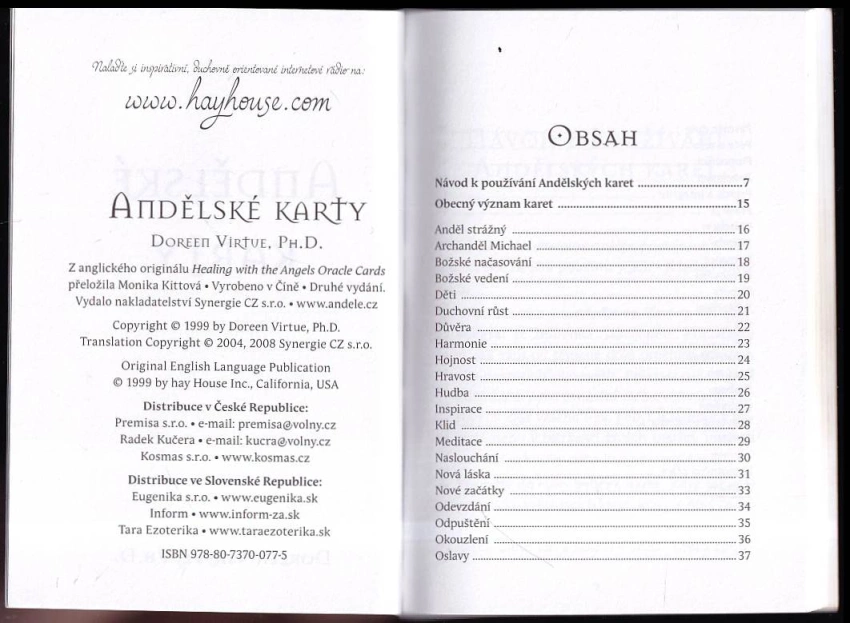 Nalaďte si inspirativní, duchovně orientované internetové rádio na:
www.hayhouse.com
Andělské karty
Doreen Virtue, Ph.D.
Z anglického originálu Healing with the Angels Oracle Cards
přeložila Monika Kittová • Vyrobeno v Číně • Druhé vydání.
Vydalo nakladatelství Synergie CZ s.r.o. • www.andele.cz
Copyright © 1999 by Doreen Virtue, Ph.D.
Translation Copyright © 2004, 2008 Synergie CZ s.r.o.
Original English Language Publication
© 1999 by hay House Inc., California, USA
Distribuce v České Republice:
Premisa s.r.o. • e-mail: premisa@volny.cz
Radek Kučera • e-mail: kucra@volny.cz
Kosmas s.r.o. • www.kosmas.cz
Distribuce ve Slovenské Republice:
Eugenika s.r.o. • www.eugenika.sk
Inform • www.inform-za.sk
Tara Ezoterika • www.taraezoterika.sk
ISBN 978-80-7370-077-5
Obsah
Návod k používání Andělských karet ........ 7
Obecný význam karet ........ 15
Anděl strážný ........ 16
Archanděl Michael ........ 17
Božské načasování ........ 18
Božské vedení ........ 19
Děti ........ 20
Duchovní růst ........ 21
Důvěra ........ 22
Harmonie ........ 23
Hojnost ........ 24
Hravost ........ 25
Hudba ........ 26
Inspirace ........ 27
Klid ........ 28
Meditace ........ 29
Naslouchání ........ 30
Nová láska ........ 31
Nové začátky ........ 33
Odevzdání ........ 34
Odpuštění ........ 35
Okouzlení ........ 36
Oslavy ........ 37